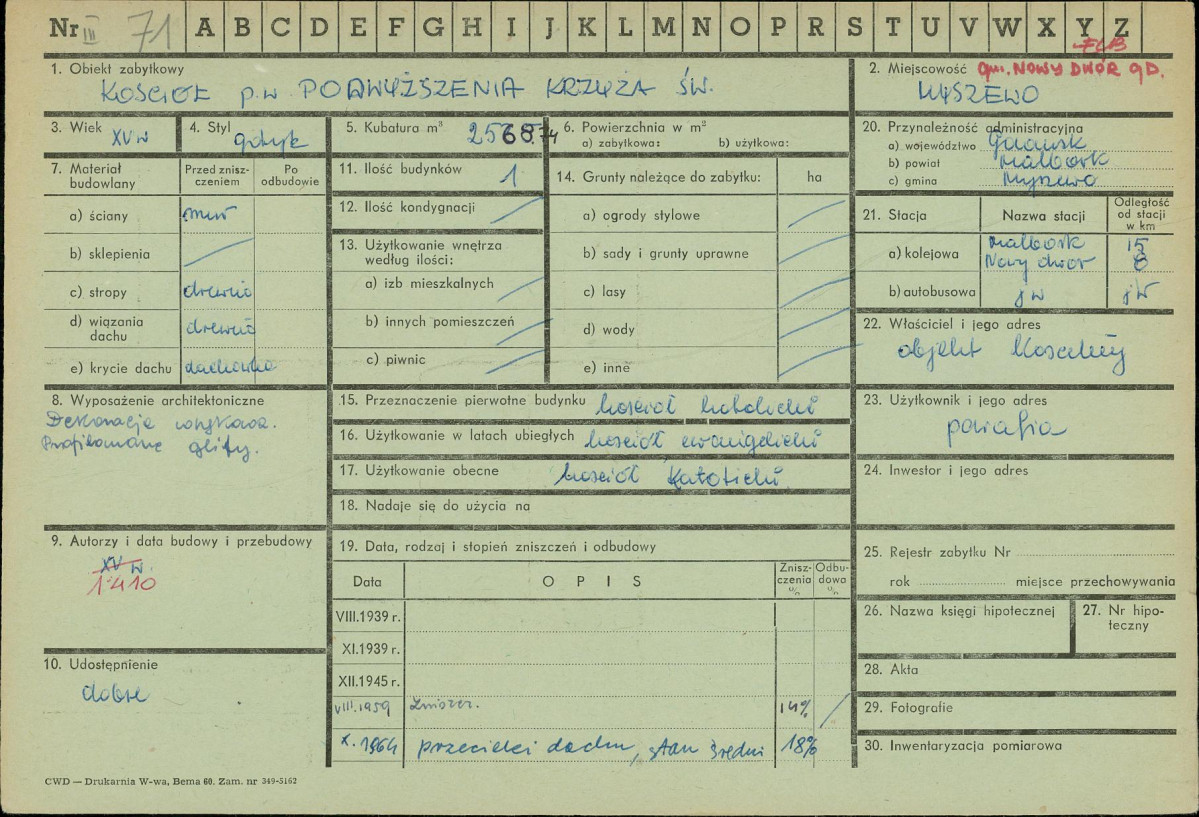 Nr III 71 A B C D E F G H I J K L M N O P R S T U V W X Y Z
1. Obiekt zabytkowy
KOŚCIÓŁ p.w PODWYŻSZENIA KRZYŻA ŚW.
2. Miejscowość gm. NOWY DWÓR GD.
MYSZEWO
3. Wiek
XV w
4. Styl
gotyk
5. Kubatura m³ 2568.74
6. Powierzchnia w m²
a) zabytkowa: b) użytkowa:
7. Materiał budowlany
Przed zniszczeniem
Po odbudowie
a) ściany mur
b) sklepienia
c) stropy drewno
d) wiązania dachu drewno
e) krycie dachu dachówka
8. Wyposażenie architektoniczne
Dekoracja
Profilowane glify.
9. Autorzy i data budowy i przebudowy
XV w.
1410
10. Udostępnienie
dobre
11. Ilość budynków 1
12. Ilość kondygnacji
13. Użytkowanie wnętrza według ilości:
a) izb mieszkalnych
b) innych pomieszczeń
c) piwnic
14. Grunty należące do zabytku: ha
a) ogrody stylowe
b) sady i grunty uprawne
c) lasy
d) wody
e) inne
15. Przeznaczenie pierwotne budynku kościół katolicki
16. Użytkowanie w latach ubiegłych kościół ewangelicki
17. Użytkowanie obecne kościół Katolicki
18. Nadaje się do użycia na
19. Data, rodzaj i stopień zniszczeń i odbudowy
Data OPIS Zniszczenia % Odbudowa %
VIII.1939 r.
XI.1939 r.
XII.1945 r.
VIII.1959 zniszcz. 14%
X. 1964 przecieki dachu, stan średni 18%
20. Przynależność administracyjna
a) województwo Gdańsk
b) powiat Malbork
c) gmina Myszewo
21. Stacja Nazwa stacji Odległość od stacji w km
a) kolejowa Malbork 15
Nowy dwór 8
b) autobusowa jw jw
22. Właściciel i jego adres
objekt Kościelny
23. Użytkownik i jego adres
parafia
24. Inwestor i jego adres
25. Rejestr zabytku Nr
rok miejsce przechowywania
26. Nazwa księgi hipotecznej
27. Nr hipoteczny
28. Akta
29. Fotografie
30. Inwentaryzacja pomiarowa
CWD — Drukarnia W-wa, Bema 60. Zam. nr 349-5162